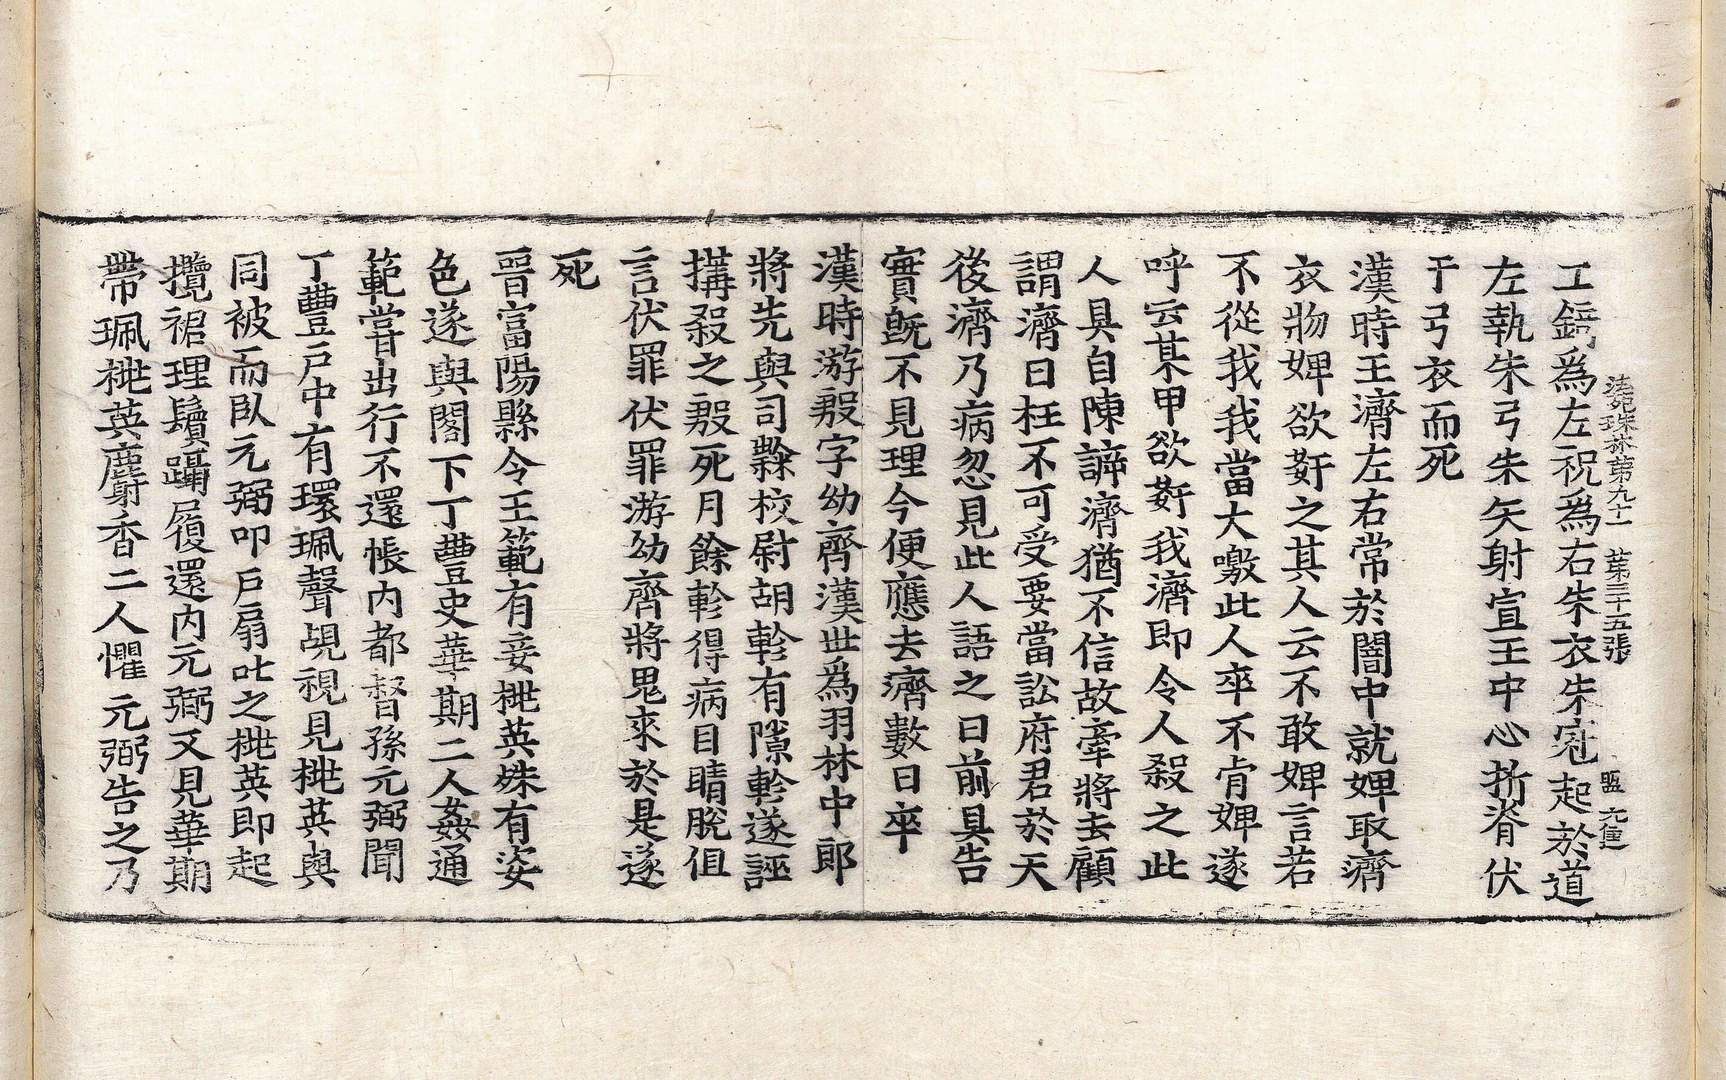 法苑珠林第九十一 第三十五張 盟
工錡爲左祝爲右朱衣朱冠起於道
左執朱弓朱矢射宣王中心折脊伏
于弓衣而死
漢時王濟左右常於闇中就婢取濟
衣物婢欲姧之其人云不敢婢言若
不從我我當大噭此人卒不肯婢遂
呼云某甲欲姧我濟即令人殺之此
人具自陳諦濟猶不信故牽將去顧
謂濟曰枉不可受要當訟府君於天
後濟乃病忽見此人語之曰前具告
實旣不見理今便應去濟數日卒
漢時游殷字幼齊漢世爲羽林中郎
將先與司隸校尉胡軫有隙軫遂誣
搆殺之殷死月餘軫得病目睛脫但
言伏罪伏罪游幼齊將鬼來於是遂
死
晉富陽縣令王範有妾桃英姝有姿
色遂與閣下丁豐史華期二人姦通
範嘗出行不還帳內都督孫元弼聞
丁豐戶中有環珮聲覘視見桃英與
同被而臥元弼叩戶扇叱之桃英即起
攬裙理鬢躡履還內元弼又見華期
帶珮桃英麝香二人懼元弼告之乃